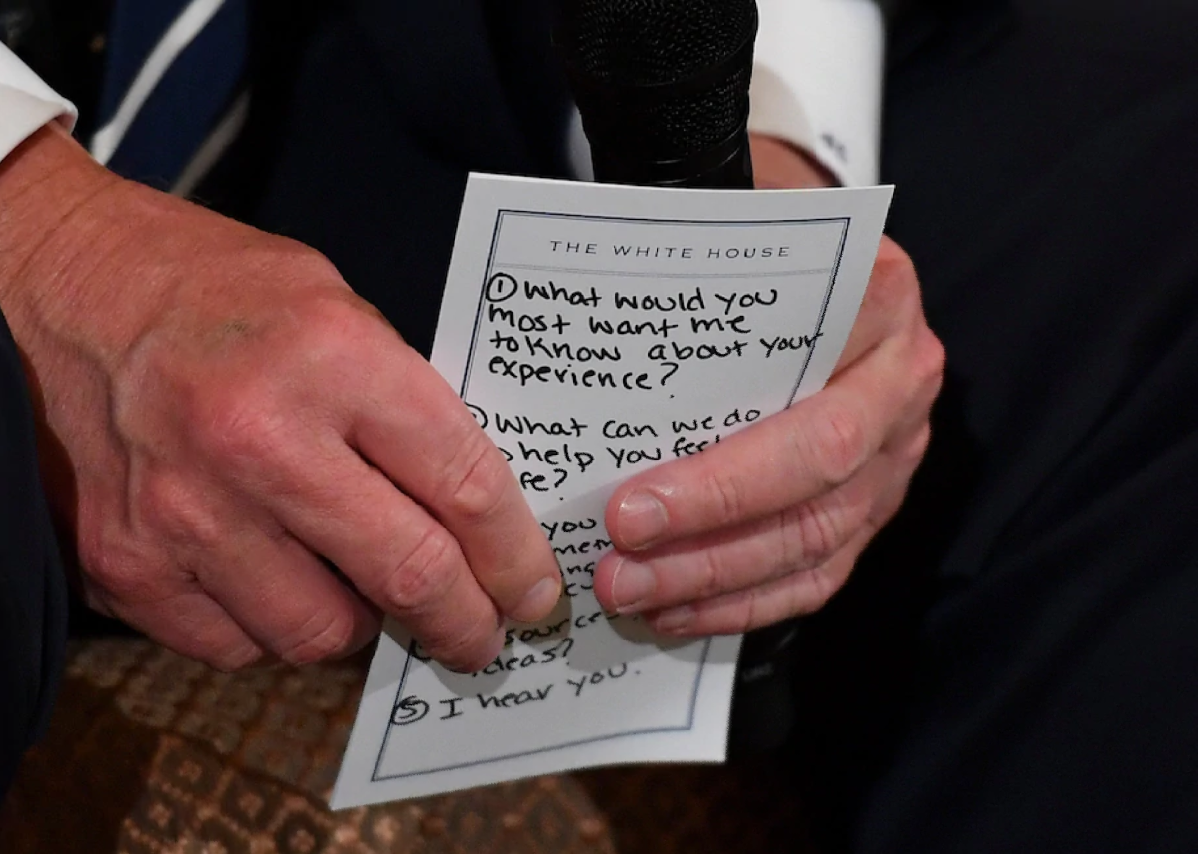 THE WHITE HOUSE
① What would you
most want me
to know about your
experience?
What can we do
help you
fe?
you
ideas?
⑤ I hear you.